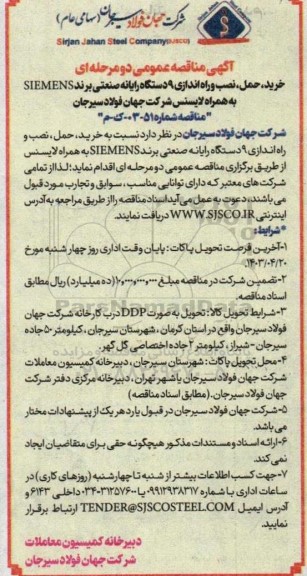 شرکت جهان فولاد سیرجان (سهامی عام)
Sirjan Jahan Steel Company(SJSCO)
آگهی مناقصه عمومی دو مرحله ای
خرید، حمل، نصب و راه اندازی ۹ دستگاه رایانه صنعتی برند SIEMENS
به همراه لایسنس شرکت جهان فولاد سیرجان
شرکت جهان فولاد سیرجان در نظر دارد نسبت به خرید، حمل، نصب و
راه اندازی ۹ دستگاه رایانه صنعتی برند SIEMENS به همراه لایسنس
از طریق برگزاری مناقصه عمومی دو مرحله ای اقدام نماید؛ لذا از تمامی
شرکت های معتبر که دارای توانایی مناسب، سوابق و تجارب مورد قبول
می باشند، دعوت به عمل می آید اسناد مناقصه را از طریق مراجعه به آدرس
اینترنتی WWW.SJSCO.IR دریافت نمایند.
*شرایط:
۱-آخرین فرصت تحویل پاکات: پایان وقت اداری روز چهار شنبه مورخ
۱۴۰۳/۰۴/۲۰.
۲-تضمین شرکت در مناقصه مبلغ ۱۰,۰۰۰,۰۰۰,۰۰۰ (ده میلیارد) ریال مطابق
اسناد مناقصه.
۳-شرایط تحویل کالا: تحویل به صورت DDP درب کارخانه شرکت جهان
فولاد سیرجان واقع در استان کرمان، شهرستان سیرجان، کیلومتر ۵۰ جاده
سیرجان - شیراز، کیلومتر ۲ جاده اختصاصی گل گهر.
۴-محل تحویل پاکات: شهرستان سیرجان، دبیرخانه کمیسیون معاملات
شرکت جهان فولاد سیرجان یا شهر تهران، دبیرخانه مرکزی دفتر شرکت
جهان فولاد سیرجان. (مطابق اسناد مناقصه)
۵-شرکت جهان فولاد سیرجان در قبول یا رد هر یک از پیشنهادات مختار
می باشد.
۶-ارائه اسناد و مستندات مذکور هیچگونه حقی برای متقاضیان ایجاد
نمی کند.
۷-جهت کسب اطلاعات بیشتر از شنبه تا چهارشنبه (روزهای کاری) در
ساعات اداری با شماره ۰۹۹۱۲۹۳۸۳۱۷ یا ۰۳۴-۳۱۲۵۷۶۰۰ داخلی ۶۱۴۳ و
آدرس ایمیل TENDER@SJSCOSTEEL.COM ارتباط برقرار
نمایید.
دبیرخانه کمیسیون معاملات
شرکت جهان فولاد سیرجان